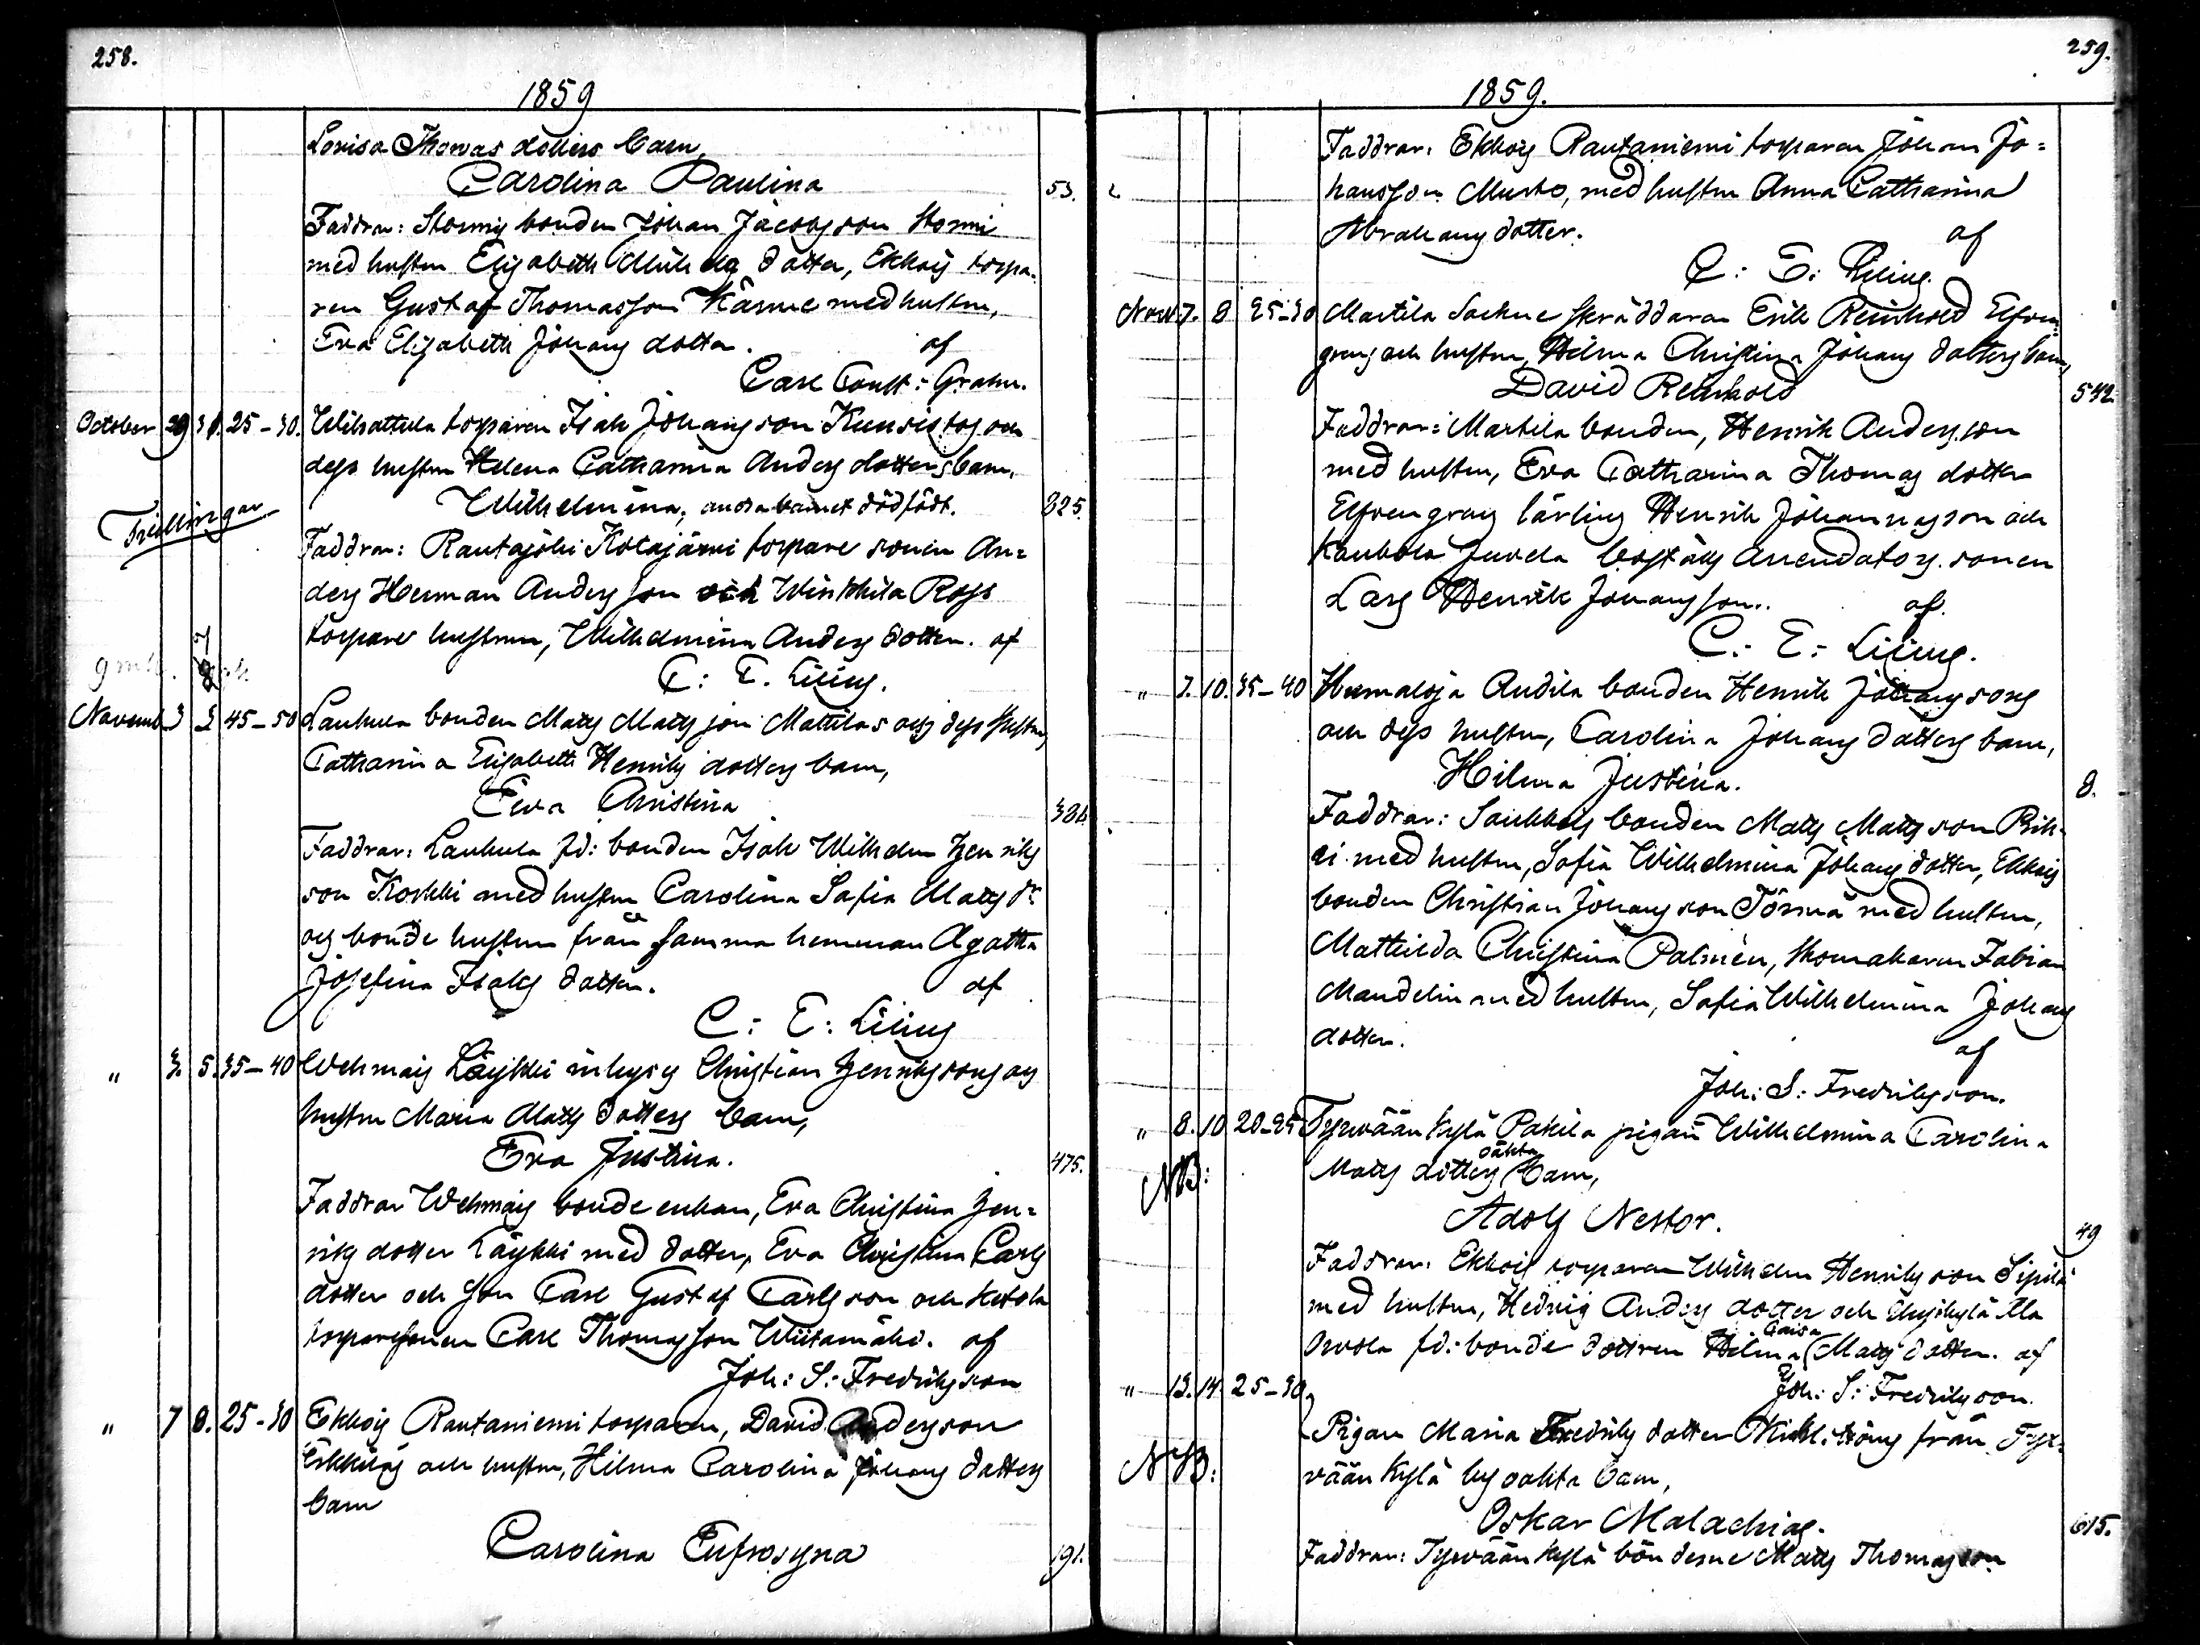 258.
1859
Lovisa Thomas dotters barn,
Carolina Paulina 53.
Faddrar: Stormis bonden Johan Jacobsson Stormi
med hustrun Elisabeth Michels dotter, Ekkois torpa-
ren Gustaf Thomasson Kärme med hustrun,
Eva Elisabeth Johans dotter. af
Carl Const: Grahn.
October 29 31. 25-30. torparen Isak Johansson Kuusistos och
dess hustru Helena Catharina Anders dotters barn,
Wilhelmina, andra barnet dödfödt. 325.
Faddrar: Rautajoki Kotajärvi torpare sonen An-
ders Herman Andersson och Winkkila Ross
torpare hustrun, Wilhelmina Anders dotter. af
C: E. Lilius.
Novemb 3 5 45-50 Laukula bonden Mats Matsson Mattilas och dess hustrus
Catharina Elisabeth Henriks dotters barn,
Eva Christina 386.
Faddrar: Laukula fd: bonden Isak Wilhelm Henriks
son Koskki med hustrun Carolina Sofia Mats dr
och bonde hustrun från samma hemman Agatha
Josefina Isaks dotter. af
C: E: Lilius
" 3. 5. 35-40 Wehmais Läykki inhyses Christian Henrikssons och
hustrun Maria Mats dotters barn,
Eva Justina. 475.
Faddrar Wehmais bonde enkan, Eva Christina Hen-
riks dotter Läykki med dotter, Eva Christina Carls
dotter och son Carl Gustaf Carlsson och Ketola
torparesonen Carl Thomasson Wiitamäki. af
Joh: S: Fredriksson
" 7 8. 25-30 Ekkois Rautaniemi torparen, David Andersson
Erkkiläs och hustrun, Hilma Carolina Johans dotters
barn
Carolina Eufrosyna 191.
259.
1859.
Faddrar: Ekkois Rautaniemi torparen Johan Jo-
hansson Musto, med hustrun Anna Catharina
Abrahams dotter. af
C: E: Lilius.
Nov. 7. 8 25-30 Martila Sockne skräddaren Erik Reinhold Elfven-
grens och hustrun, Hilma Christina Johans dotters barn,
David Reinhold 542.
Faddrar: Martila bonden, Henrik Andersson
med hustrun, Eva Catharina Thomas dotter
Elfvengrens lärling Henrik Johannesson och
Kaukola Juvela boställs arrendators sonen
Lars Henrik Johansson. af
C: E: Lilius.
" 7. 10. 35-40 Humaloja Andila bonden Henrik Johanssons
och dess hustrun, Carolina Johans dotters barn,
Hilma Justina. 8.
Faddrar: bonden Mats Matsson
med hustrun, Sofia Wilhelmina Johans dotter, Ekkois
bonden Christian Johansson Törmä med hustrun,
Mathilda Christina Palmén, skomakaren Fabian
Mandelin med hustrun, Sofia Wilhelmina Johans
dotter. af
Joh: S: Fredriksson.
" 8. 10 20-25 Tyrvään kylä Pakila pigan Wilhelmina Carolina
NB: Mats dotters oäkta barn,
Adolf Nestor. 49
Faddrar: Ekkois torparen Wilhelm Henriksson Sipilä
med hustrun, Hedvig Anders dotter och Ala
Orvola fd: bonde dottren Mats dotter. af
Joh: S: Fredriksson.
" 13. 14 25-30
Pigan Maria Fredriks dotter från Tyr-
NB: vään kylä by oäkta barn,
Oskar Malachias. 615.
Faddrar: Tyrvään kylä bönderne Mats Thomasson